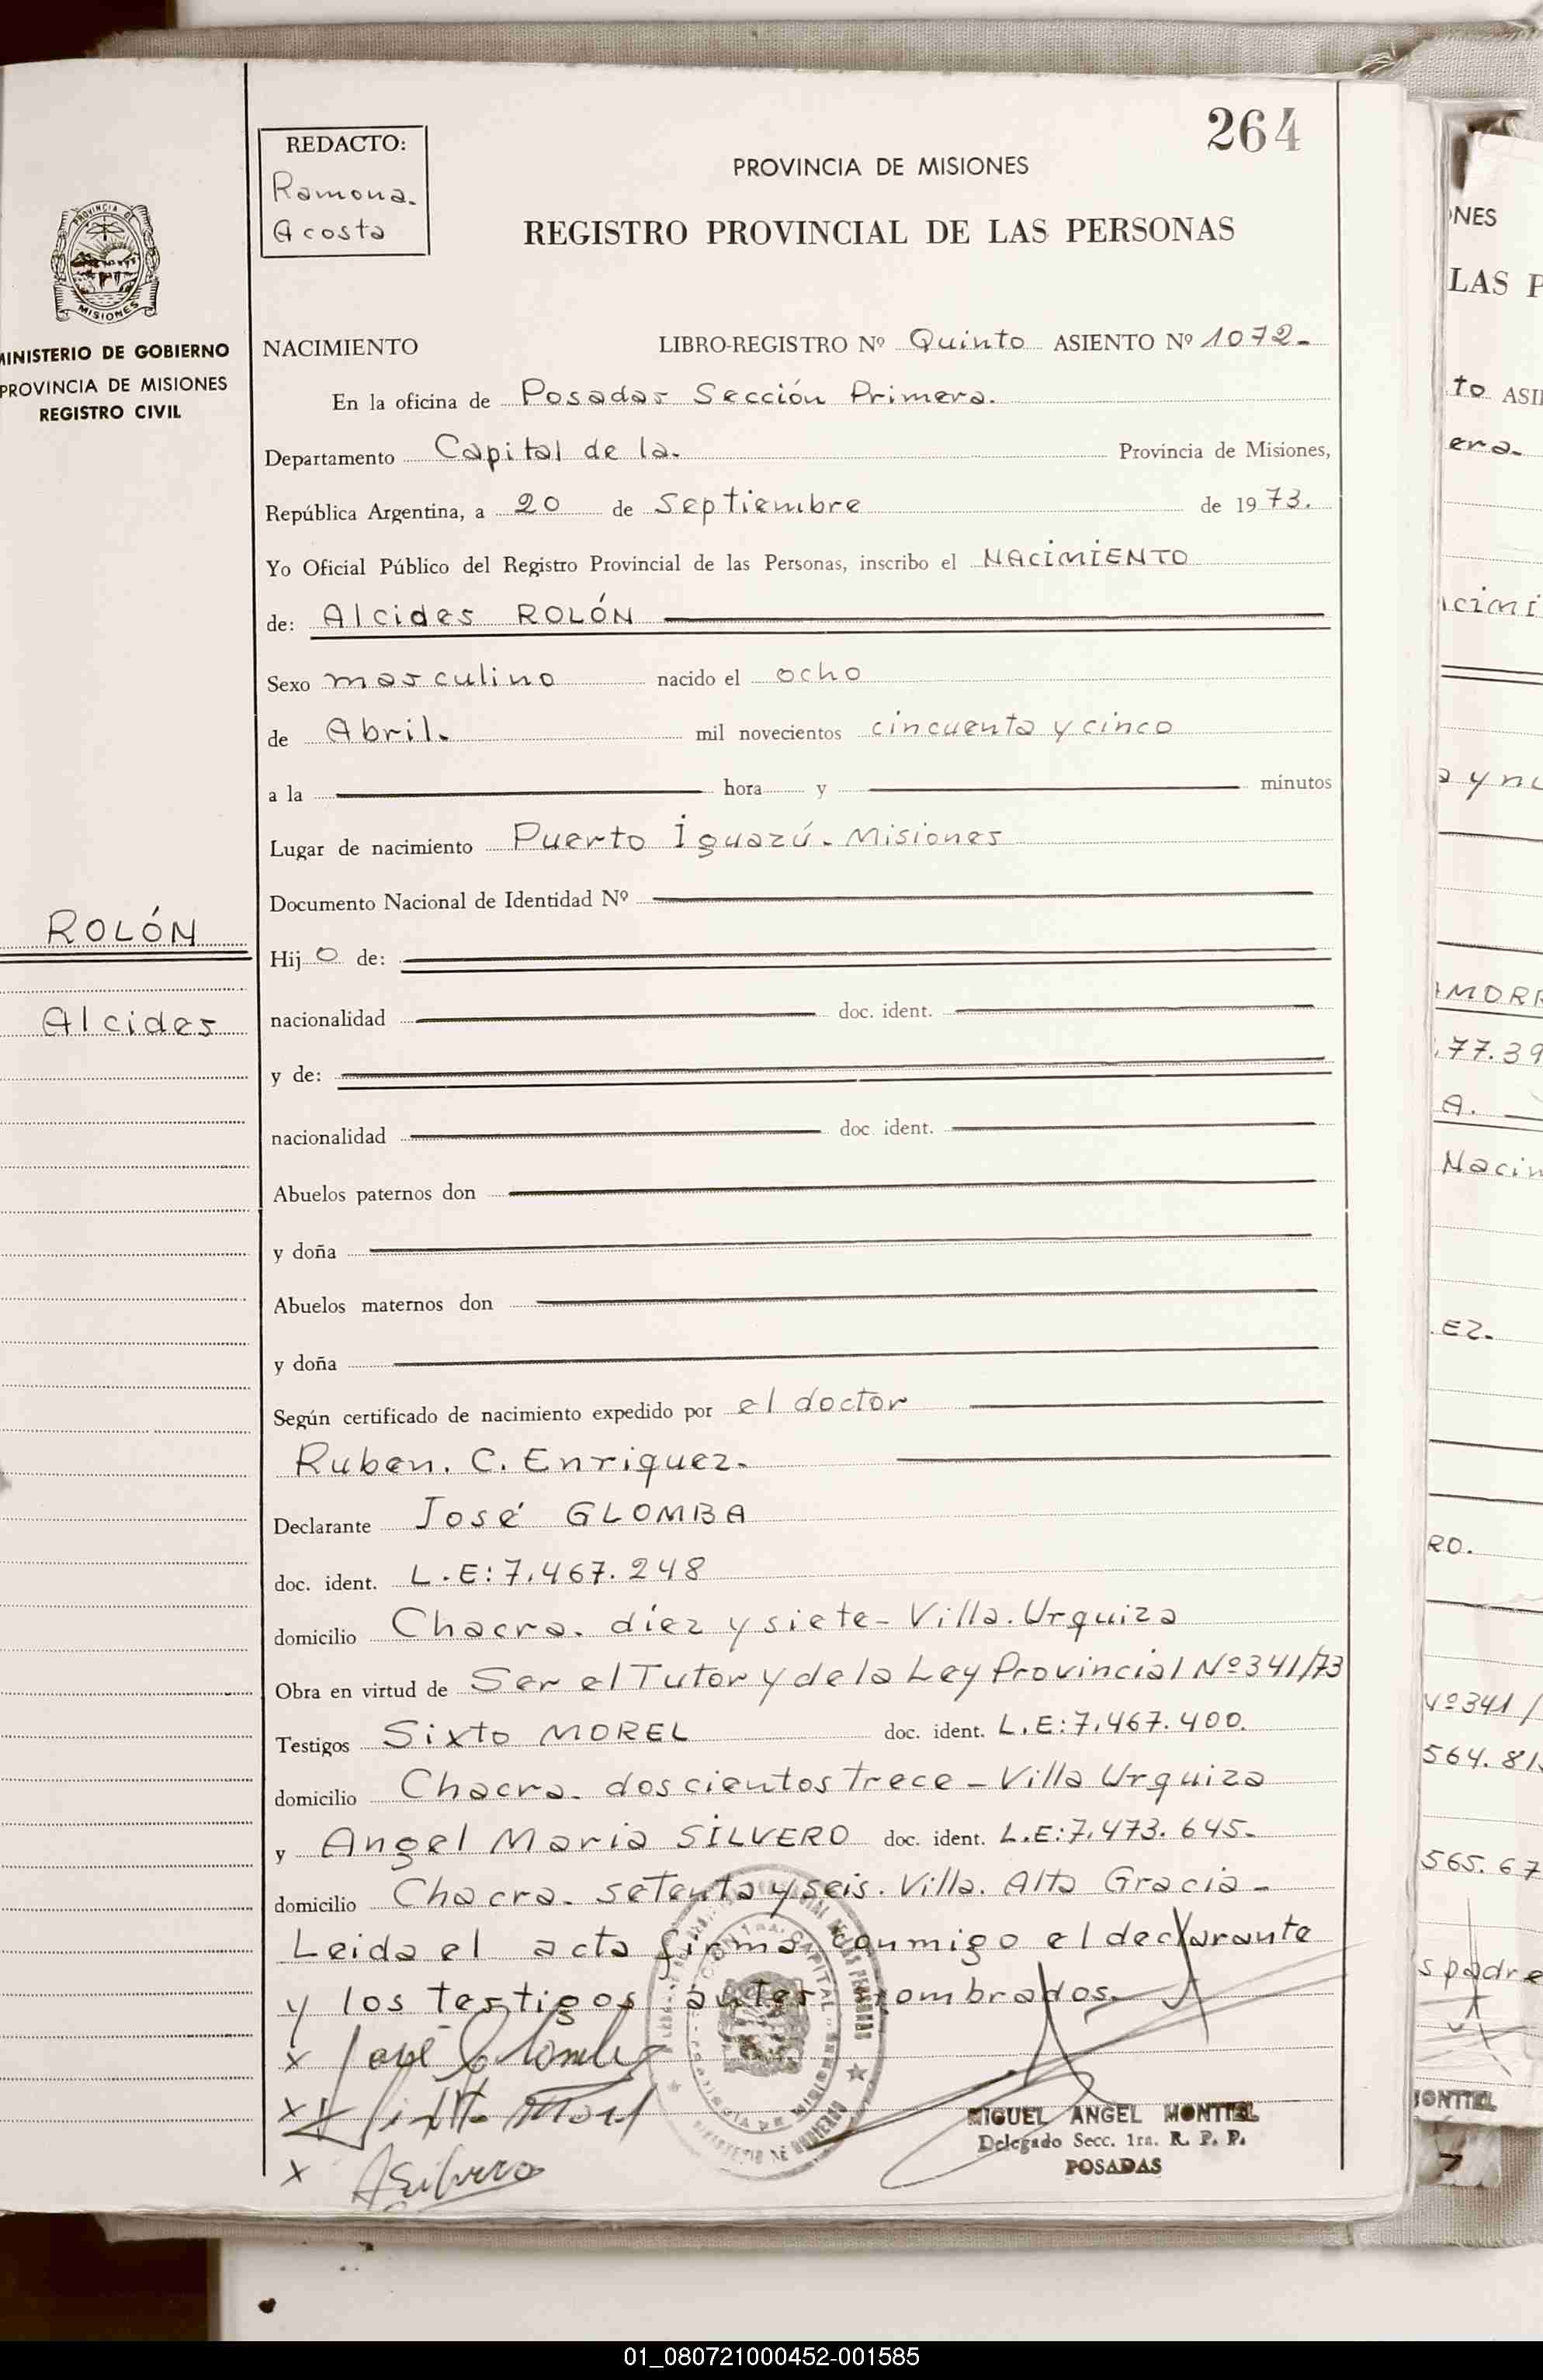 264
REDACTO:
Ramona.
Acosta
PROVINCIA DE MISIONES
REGISTRO PROVINCIAL DE LAS PERSONAS
PROVINCIA DE
MISIONES
MINISTERIO DE GOBIERNO
PROVINCIA DE MISIONES
REGISTRO CIVIL
NACIMIENTO LIBRO-REGISTRO Nº Quinto ASIENTO Nº 1072-
En la oficina de Posadas Sección Primera.
Departamento Capital de la. Provincia de Misiones,
República Argentina, a 20 de Septiembre de 1973.
Yo Oficial Público del Registro Provincial de las Personas, inscribo el NACIMIENTO
de: Alcides ROLÓN
Sexo masculino nacido el ocho
de Abril. mil novecientos cincuenta y cinco
a la hora y minutos
Lugar de nacimiento Puerto Iguazú. Misiones
Documento Nacional de Identidad Nº
ROLÓN
Hijo de:
Alcides
nacionalidad doc. ident.
y de:
nacionalidad doc. ident.
Abuelos paternos don
y doña
Abuelos maternos don
y doña
Según certificado de nacimiento expedido por el doctor
Ruben. C. Enriquez.
Declarante José GLOMBA
doc. ident. L.E:7.467.248
domicilio Chacra. díez y siete- Villa. Urquiza
Obra en virtud de Ser el Tutor y de la Ley Provincial Nº341/73
Testigos Sixto MOREL doc. ident. L.E:7.467.400.
domicilio Chacra. doscientos trece - Villa Urquiza
y Angel Maria SILVERO doc. ident. L.E:7.473.645-
domicilio Chacra. setenta y seis. Villa. Alta Gracia-
Leida el acta firma conmigo el declarante
y los testigos antes nombrados.
x José Glomba
x Sixto Morel
x ASilvero
MIGUEL ANGEL MONTIEL
Delegado Secc. 1ra. R. P. P.
POSADAS
NES
LAS P
to ASI
era.
cimi
a y nu
AMORR
.77.39
A.
Nacim
EZ.
RO.
Nº341/
564.81
565.67
s padre
MONTIEL
01_080721000452-001585